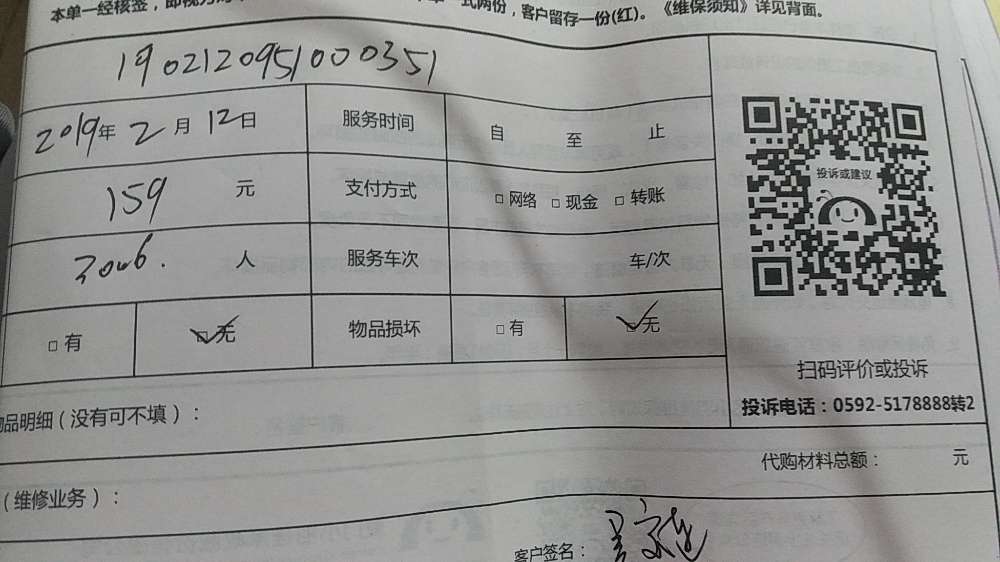 本单一经核签，即视为
式两份，客户留存一份(红)。《维保须知》详见背面。
1902120951000351
2019年 2 月 12日 服务时间 自 至 止
159 元 支付方式 □ 网络 □ 现金 □ 转账
3006. 人 服务车次 车/次
□ 有 □ 无 物品损坏 □ 有 □ 无
投诉或建议
扫码评价或投诉
投诉电话：0592-5178888转2
品明细（没有可不填）：
代购材料总额： 元
（维修业务）：
客户签名：